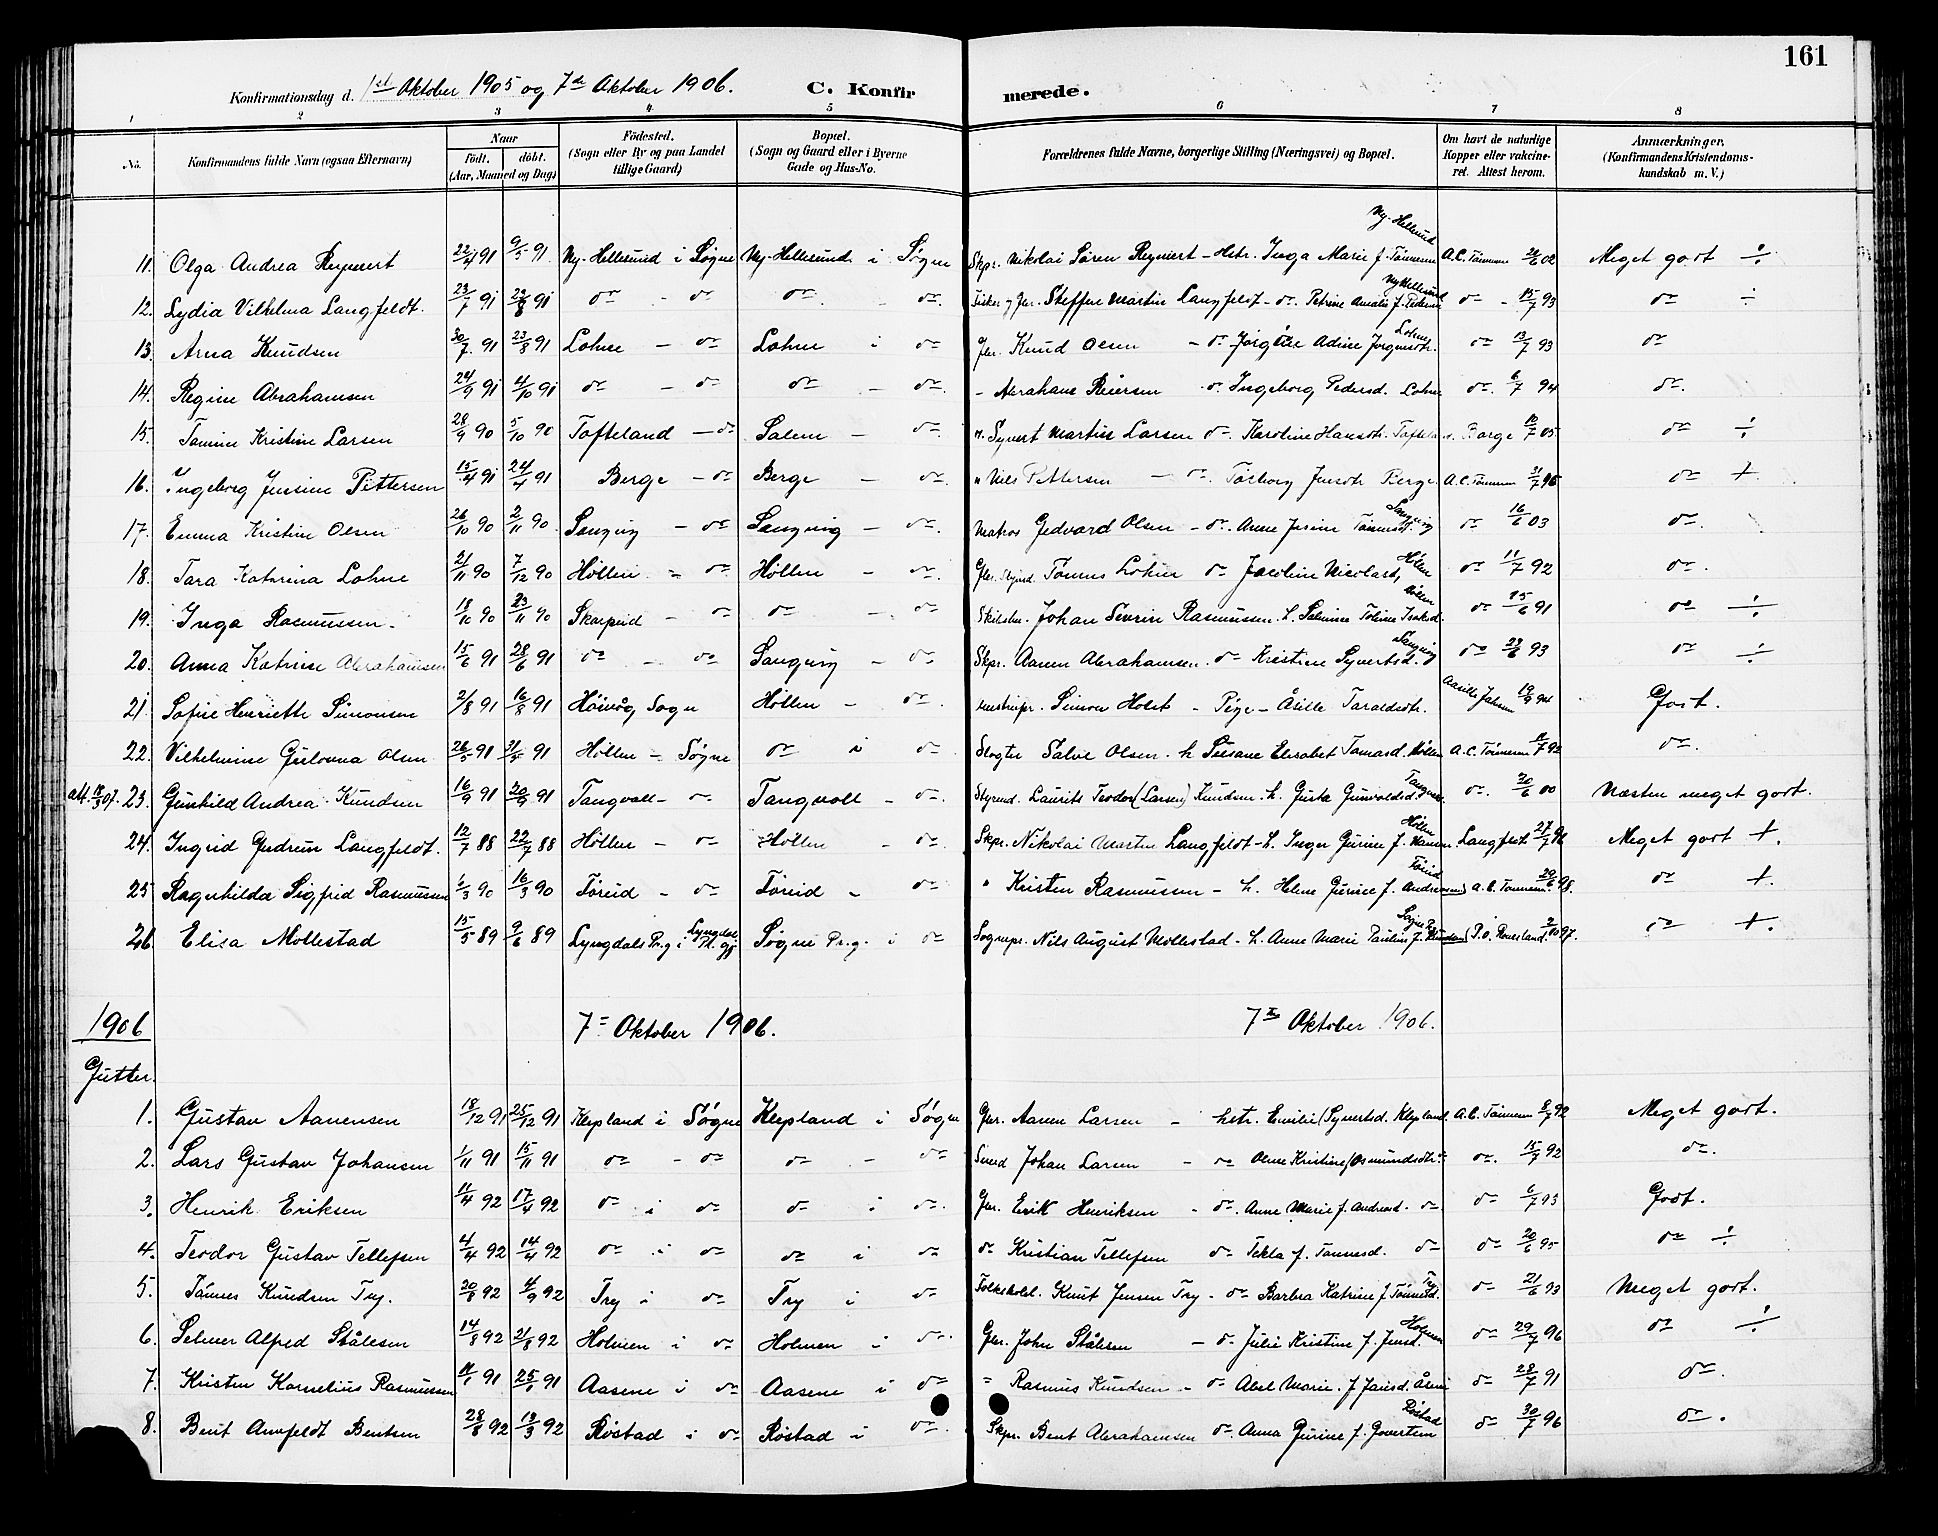 161
Konfirmationsdag d. 1st Oktober 1905 og 7de Oktober 1906. C. Konfirmerede.
1 2 3 4 5 6 7 8
No. Konfirmandens fulde Navn (ogsaa Efternavn) Naar födt. döbt. (Aar, Maaned og Dag) Födested. (Sogn eller By og paa Landet tillige Gaard) Bopæl. (Sogn og Gaard eller i Byerne Gade og Hus-No. Forældrenes fulde Navne, borgerlige Stilling (Næringsvei) og Bopæl. Om havt de naturlige Kopper eller vakcineret. Attest herom. Anmærkninger. (Konfirmandens Kristendomskundskab m. V.)
11. Olga Andrea Reynert 22/4 91 9/5 91 Ny-Hellesund i Søgne Ny-Hellesund i Søgne Skpr. Nikolai Sören Reynert - Hstr. Inga Marie f. Tönnesen Ny-Hellesund A.C. Tönnesen 02 Meget godt ÷
12. Lydia Vilhelma Langfeldt. 23/7 91 23/8 91 do - do do - do. Fisker og Gbr. Steffen Martin Langfeldt - do. Petrine Amalie f. Pedersen Ny Hellesund do - 15/7 93 do ÷
13. Anna Knudsen 30/7 91 23/8 91 Lohne - do Lohne i do Gbr. Knud Olsen - do Adine Jörgensdtr. Lohne do 13/7 93 do
14. Regine Abrahamsen 24/9 91 4/10 91 do - do do - do. - Abraham Reiersen do. Ingeborg Pedersd. Lohne do. 6/7 94 do.
15. Tomine Kristine Larsen 28/9 90 5/10 90 Tofteland - do Salem - do. " Syvert Martin Larsen do. Karoline Hansdtr. Berge 05 do ÷
16. Ingeborg Jensine Pettersen 15/4 91 24/4 91 Berge - do Berge - do. " Nils Pettersen - do. Torborg Jensdtr Berge. A.C. Tönnesen 31/7 do +
17. Emma Kristine Olsen 26/10 90 2/11 90. Sangvig - do Sangvig - do. Matros Gedvard Olsen - do. Anne Jesine Tönnesd. Sangvig do 16/6 03 do.
18. Tara Katrina Lohne 21/11 90 7/12 90 Höllen - do Höllen - do. Gbr. Tönnes Lohne do Jacoline Nicolaisd. Höllen do 11/7 92 do.
19. Inga Rasmussen. 18/10 90 23/11 90 Skarpeid - do do - do Johan Severin Rasmussen. h. Toline Isaksd. Höllen do 15/6 91 do ÷
20. Anna Katrine Abrahamsen 15/6 91 28/6 91 do - do Sangvig - do Skpr. Aanen Abrahamsen. do Kristine Syvertsd. Sangvig do 23/6 93 do ÷
21. Sofie Henriette Simonsen 2/8 91 16/8 91 Höivåg Sogn Höllen - do Simon Holst - Pige - Åsille Taraldsdtr. 94 Godt.
22. Vilhelmine Gulovna Olsen 26/5 91 31/5 91 Höllen - Søgne do i do Slogter Salve Olsen. h Susane Elisabet Tomasd. Höllen A.C. Tönnesen 92 do.
att. 18/3 07. 23. Gunhild Andrea Knudsen 16/9 91 20/9 91 Tangvall - do Tangvall - do. Styrmd. Laurits Teodor (Larsen) Knudsen. h. Gusta Gunvaldsd. Tangvall do. 20/6 00 Næsten meget godt.
24. Ingrid Gudrun Langfeldt. 12/7 88 22/7 88 Höllen - do Höllen - do. Skpr. Nikolai Martin Langfeldt - h. Inger Gurine f. Hansen. Höllen Langfeldt 27/7 96 Meget godt +.
25 Ragnhilda Sigfrid Rasmussen 1/3 90 16/3 90 Töreid - do Töreid - do " Kristen Rasmussen - h. Helene Gurine f. Andreasen Töreid A.C. Tönnesen. 20/6 98. do +.
26 Elisa Mollestad 15/5 89 9/6 89 Lyngdals Pr.g i Lyngdal Søgne Pr.g. i do Sognepr. Nils August Mollestad - h. Anne Marie Pauline f. Knudsen 97. do +.
1906 7= Oktober 1906. 7de Oktober 1906.
Gutter.
1. Gustav Aanensen 18/12 91 25/12 91 Klepland i Søgne Klepland i Søgne Gbr. Aanen Larsen - hstr. Emilie Syvertsd. Klepland. A.C. Tönnesen 8/7 92 Meget godt.
2. Lars Gustav Johansen 1/11 91 15/11 91 do - do do - do Smed Johan Larsen - do Oline Kristine Osmundsdtr do. 15/7 92 do.
3. Henrik Eriksen 11/4 92 17/4 92 do i do do i do. Gbr. Erik Henriksen - do. Anne Marie f. Andreasd. do do 6/7 93 Godt.
4. Teodor Gustav Tellefsen 4/4 92 14/4 92 do i do do i do do Kristian Tellefsen do Tekla f. Tönnesd. do do 20/6 95 do ÷
5. Tönnes Knudsen Try. 20/8 92 4/9 92 Try i do Try i do Folkeskolel. Knut Jensen Try - do Barbra Katrine f. Tönnesd. Try do 21/6 93 Meget godt.
6. Selmer Alfred Stålesen 14/8 92 21/8 92 Holmen i do Holmen i do Gbr. John Stålesen - do Julie Kristine f. Jensd. Holmen do 29/7 96 do ÷
7. Kristen Kornelius Rasmussen 91 25/1 91 Aasene i do Aasene i do - Rasmus Knudsen - do Abel Marie f Jansd. do 28/7 91 do.
8. Bent Anfeldt Bentsen 28/8 92 13/3 92 Röstad i do Röstad i do. Skpr. Bent Abrahamsen do. Anna Gurine f. Govertsen Röstad do 30/7 96 do.